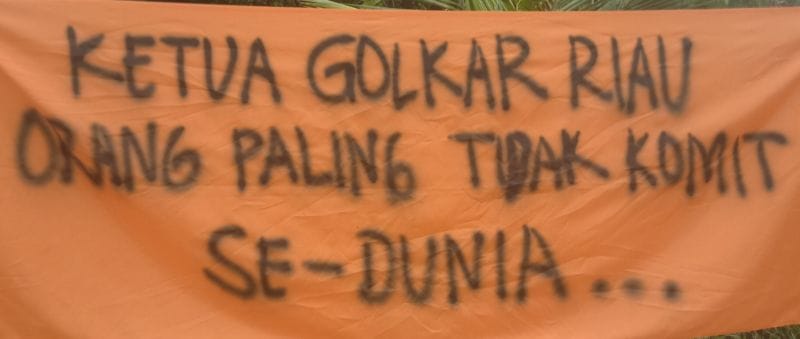 KETUA GOLKAR RIAU
ORANG PALING TIDAK KOMIT
SE-DUNIA...